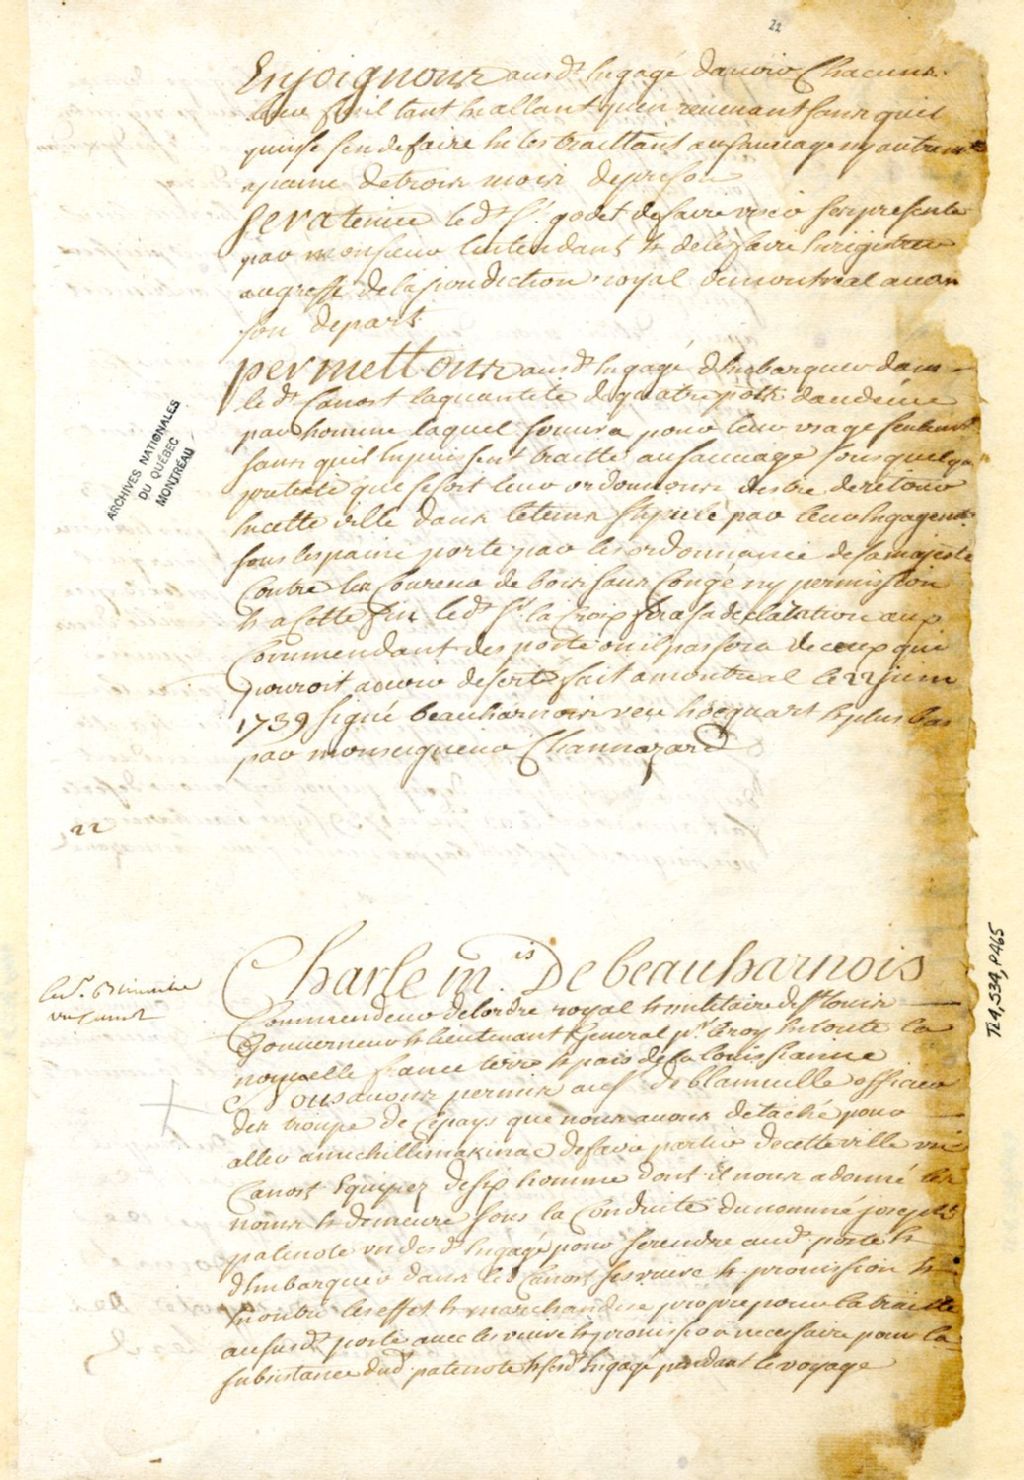 22
Enjoignons ausd. Engagé davoir Chacuns
leur fusil tant En allant quen revenant sans quil
puisse sen defaire En les traittant au sauvage ny autrem
apaine detrois mois deprison
Sera tenue led. Sr. godet defaire viser ses presente
par monsieur lintendant & deles faire Enrigistrer
augreffe dela juridiction royal demontreal avan
son depart
permettons ausd. Engagé dEmbarquer dans
led. Canost laquantité de quatre pots daudevie
par homme laquel servira pour leur usage seulemt
sans quil En puissent traitte au sauvage sous quelque
pretexte que sesoit leur ordonnons destre deretour
En cette ville dans letems Expiré par leur Engagemt.
sous lespaine porte par les ordonnance desamajesté
Contre les Coureur de bois sans Congé ny permission
& a Cette fin led. Sr. la Croix fera sa declaration aux
Commendant des poste ou il passera deceux qui
pouroit avoir deserté fait a montreal le 22 juin
1739 signé beauharnois veu hocquart & plus bas
par monseigneur Channazard
ARCHIVES NATIONALES
DU QUÉBEC
MONTRÉAL
22
Charle m.is De beauharnois
Commendeur delordre royal & militaire de St louis
Gouverneur & lieutenant General pr. leroy En toute la
nouvelle france terre & pais dela louissianne
Nous avons permis au Sr. de blainville officier
des troupe de Cepays que nous avons detaché pour
aller amichillimakinac defaire partir decette ville un
Canost Equipez desix homme dont il nous a donné les
noms & demeure sous la Conduite dunommé joseph
patenote un desd. Engagé pour serendre aud. poste &
dEmbarquer dans led. Canost ses vivre & provission &
En outre les effet & marchandise propre pour la traitte
au susd. poste avec les vivre & provission necessaire pour la
subsistance dud. patenote & sesd. Engagé pendant le voyage
le Sr. Blinville
un Canot
TL4,S34,P465